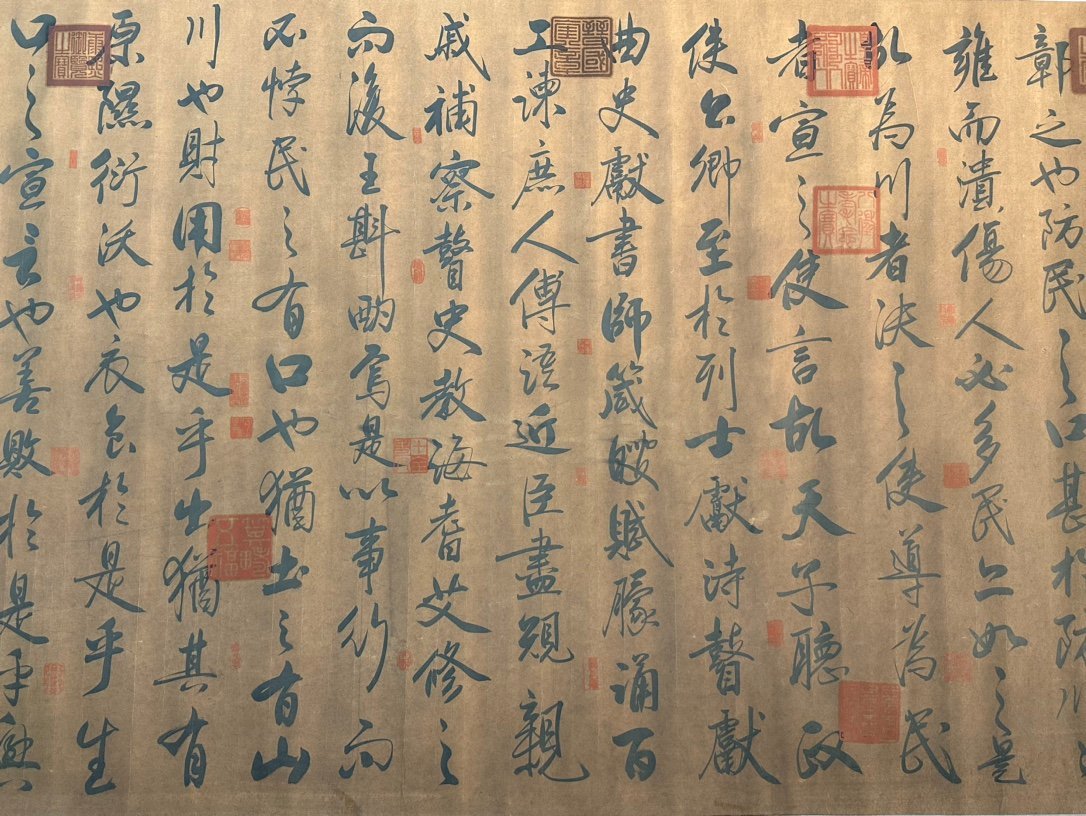 鄣之也防民之口甚於防川
雍而潰傷人必多民亦如之是
故為川者決之使導為民
者宣之使言故天子聽政
使公卿至於列士獻詩瞽獻
曲史獻書師箴瞍賦矇誦百
工諫庶人傳語近臣盡規親
戚補察瞽史教誨耆艾修之
而後王斟酌焉是以事行而
不悖民之有口也猶土之有山
川也財用於是乎出猶其有
原隰衍沃也衣食於是乎生
口之宣言也善敗於是乎興